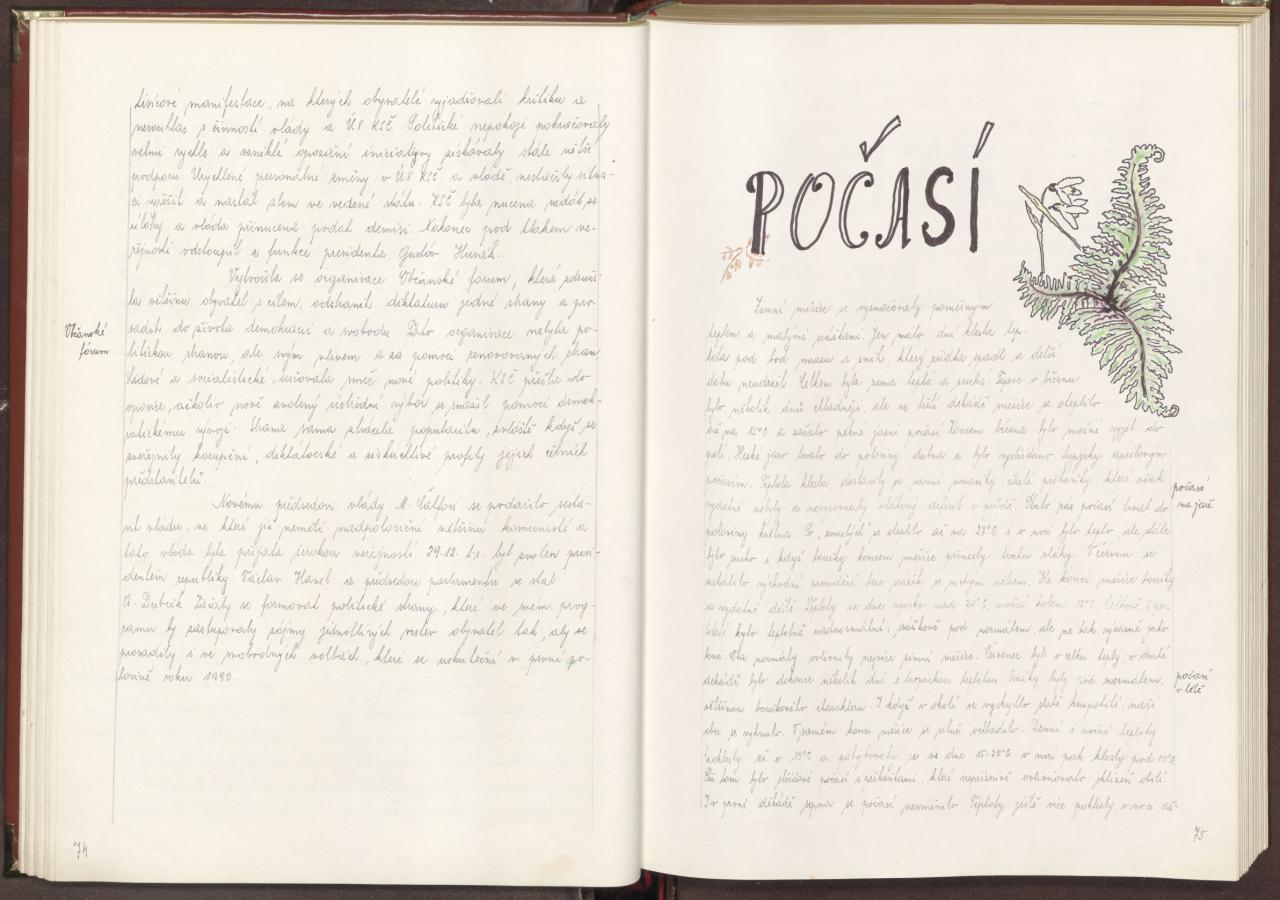 tisícové manifestace, na kterých obyvatelé vyjadřovali kritiku a
nesouhlas s činností vlády a ÚV KSČ. Politické nepokoje pokračovaly
velmi rychle a vzniklé opoziční iniciativy získávaly stále větší
podporu. Urychlené personální změny v ÚV KSČ a vládě, nestačily situa-
ci vyřešit a nastal zlom ve vedení státu. KSČ byla nucena vzdát se
úlohy a vláda přinucena podat demisi. Nakonec pod tlakem ve-
řejnosti odstoupil z funkce presidenta Gustáv Husák.
Vytvořila se organizace Občanské fórum, která sdruži-
la většinu obyvatel s cílem, odstranit diktaturu jedné strany a pro-
sadit do života demokracii a svobodu. Tato organizace nebyla po-
litickou stranou, ale svým vlivem a za pomoci renovovaných stran
lidové a socialistické, určovala směr nové politiky. KSČ přešla do
opozice, ačkoliv nově zvolený ústřední výbor se snažil pomoci demok-
ratickému vývoji. Strana sama ztrácela popularitu, zvláště když se
zveřejnily korupční, diktátorské a ziskuchtivé profily jejich čelních
představitelů.
Novému předsedovi vlády M. Čalfovi se podařilo sesta-
vit vládu, ve které již neměli nadpoloviční většinu komunisté a
tato vláda byla přijata širokou veřejností. 29.12. t.r. byl zvolen presi-
dentem republiky Václav Havel a předsedou parlamentu se stal
A. Dubček. Začaly se formovat politické strany, které ve svém prog-
ramu by zastupovaly zájmy jednotlivých vrstev obyvatel tak, aby se
prosadily i ve svobodných volbách, které se uskuteční v první po-
lovině roku 1990.
Občanské
fórum
74
POČASÍ
Zimní měsíce se vyznačovaly poměrným
teplem a malými srážkami. Jen málo dní klesla tep-
lota pod bod mrazu a sníh, který zčásti spadl se delší
dobu neudržel. Celkem byla zima teplá a suchá. Teprve v březnu
bylo několik dnů chladněji, ale ve třetí dekádě měsíce se oteplilo
až na 15°C a začalo pěkné jarní počasí. Koncem března bylo možné vyjet do
polí. Hezké jaro trvalo do poloviny dubna a bylo vystřídáno typicky aprílovým
počasím. Teplota klesla, dostavily se ranní mrazíky, časté přeháňky, které však
vydatné nebyly a nevyrovnaly vláhový deficit v půdě. Tento ráz počasí trval do
poloviny května. Po „zmrzlých" se oteplilo až na 27°C i v noci bylo teplo, ale stále
bylo sucho i když bouřky koncem měsíce přinesly trochu vláhy. V červnu se
ustálilo východní proudění bez srážek se suchým větrem. Ke konci měsíce bouřky
a vydatné deště. Teploty ve dne vysoko nad 20°C, noční kolem 12°C. Celkově I. po-
loletí bylo teplotně nadnormální, srážkově pod normálem, ale ne tak výrazně jako
loni. Oba normály ovlivnily nejvíce zimní měsíce. Červenec byl v celku teplý, v druhé
dekádě bylo dokonce několik dní s tropickou teplotou. Srážky byly nad normálem,
většinou bouřkového charakteru. I když v okolí se vyskytlo slabé krupobití, naší
obci se vyhnulo. V samém konci měsíce se silně ochladilo. Denní i noční teploty
poklesly až o 15°C a pohybovaly se ve dne 15-20°C v noci pak klesly pod 10°C.
Při tom bylo střídavé počasí s přeháňkami, které nepříznivě ovlivňovalo sklizeň obilí.
I v první dekádě srpna se počasí nezměnilo. Teploty ještě více poklesly, v noci až
počasí
na jaře
počasí
v létě
75